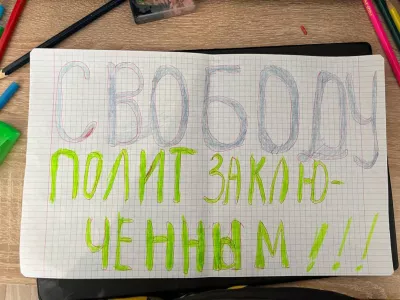 СВОБОДУ
ПОЛИТ ЗАКЛЮ-
ЧЕННЫМ!!!